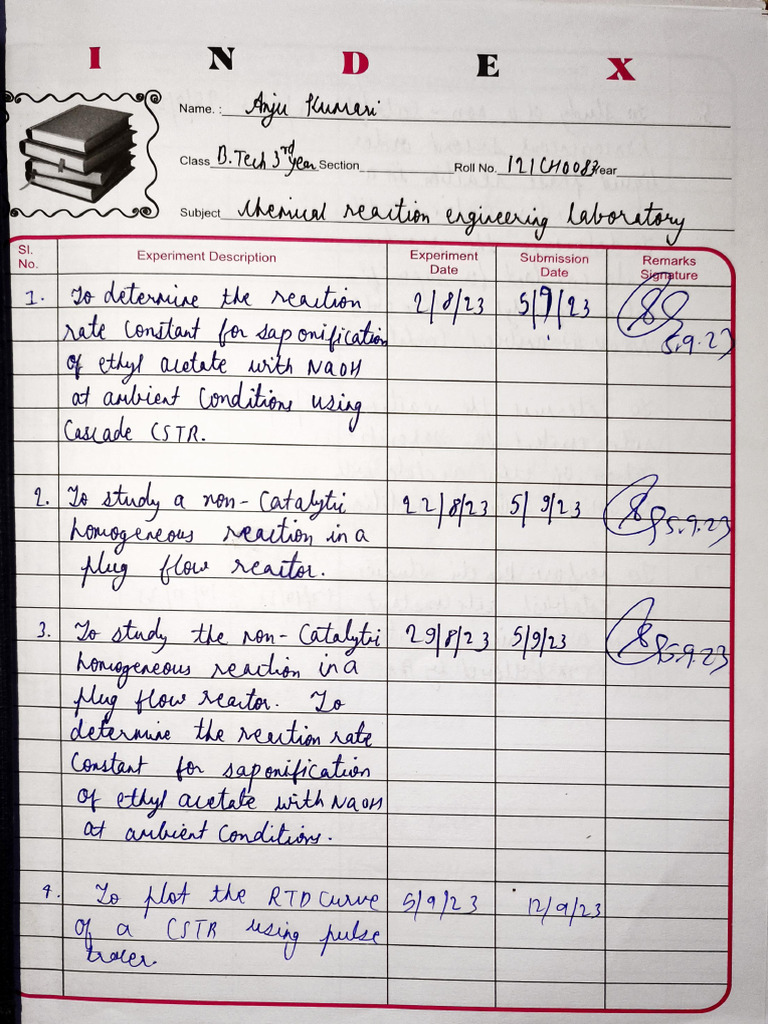 INDEX
Name. : Anju Kumari
Class B.Tech 3rd year Section Roll No. 121CH0083 Year
Subject Chemical reaction engineering laboratory
Sl. No. Experiment Description Experiment Date Submission Date Remarks Signature
1. To determine the reaction 2/8/23 5/9/23
rate constant for saponification 5.9.23
of ethyl acetate with NaOH
at ambient conditions using
Cascade CSTR.
2. To study a non-Catalytic 22/8/23 5/9/23 5.9.23
homogeneous reaction in a
plug flow reactor.
3. To study the non-Catalytic 29/8/23 5/9/23 5.9.23
homogeneous reaction in a
plug flow reactor. To
determine the reaction rate
Constant for saponification
of ethyl acetate with NaOH
at ambient conditions.
4. To plot the RTD curve 5/9/23 12/9/23
of a CSTR using pulse
tracer.